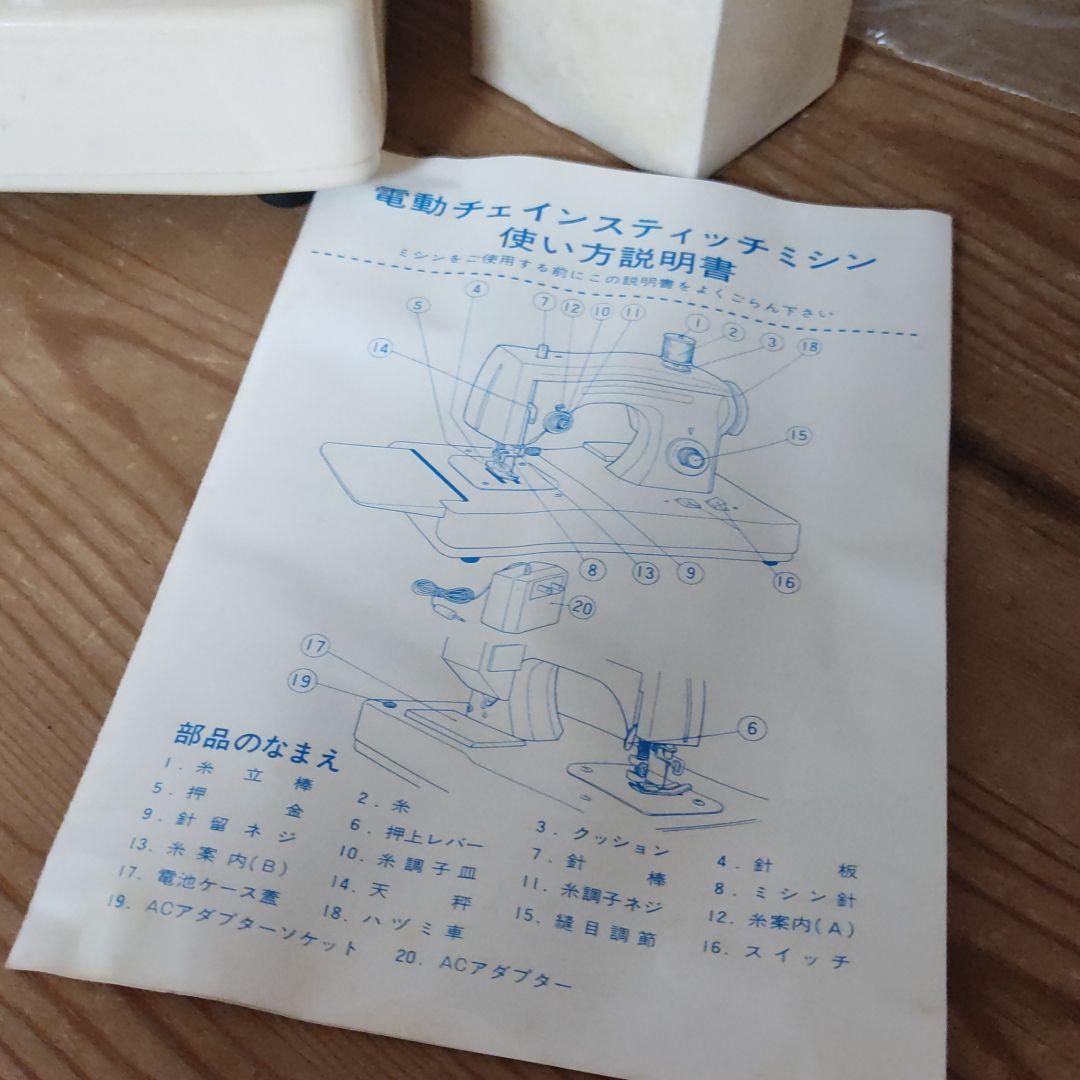 電動チェインスティッチミシン
使い方説明書
ミシンをご使用する前にこの説明書をよくごらん下さい
5 4 7 12 10 11 1 2 3 18
14
15
8 13 9 16
20
17
19
6
部品のなまえ
1. 糸立棒 2. 糸 3. クッション 4. 針板
5. 押金 6. 押上レバー 7. 針棒 8. ミシン針
9. 針留ネジ 10. 糸調子皿 11. 糸調子ネジ 12. 糸案内(A)
13. 糸案内(B) 14. 天秤 15. 縫目調節 16. スイッチ
17. 電池ケース蓋 18. ハヅミ車
19. ACアダプターソケット 20. ACアダプター